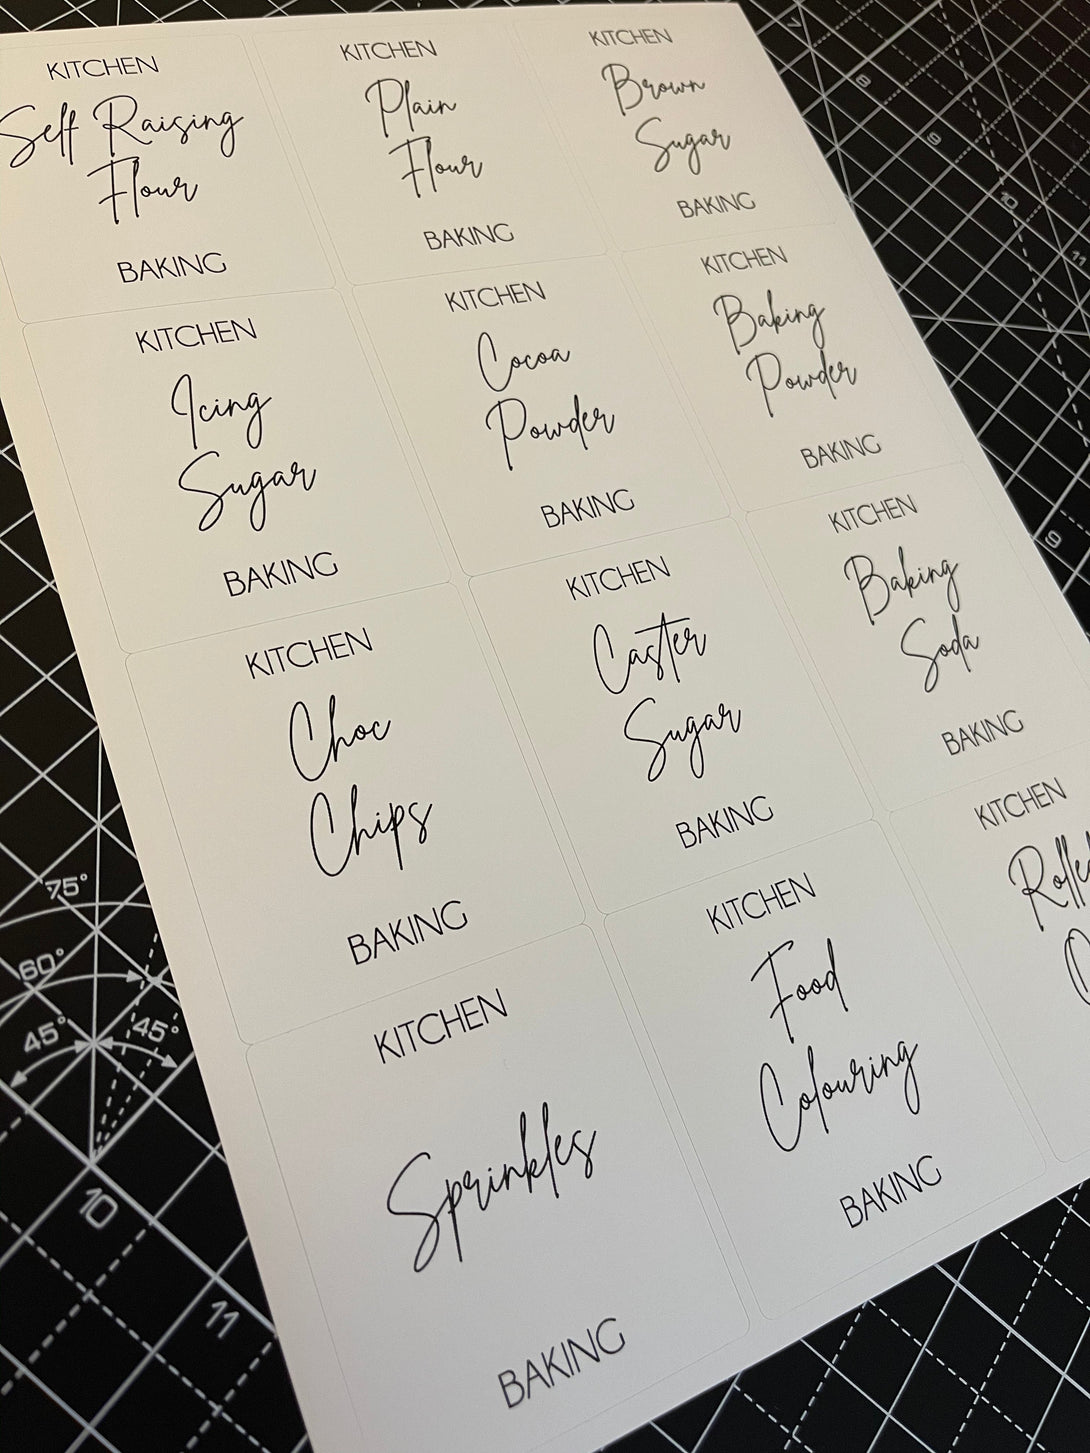 KITCHEN
Self Raising
Flour
BAKING
KITCHEN
Plain
Flour
BAKING
KITCHEN
Brown
Sugar
BAKING
KITCHEN
Icing
Sugar
BAKING
KITCHEN
Cocoa
Powder
BAKING
KITCHEN
Baking
Powder
BAKING
KITCHEN
Choc
Chips
BAKING
KITCHEN
Caster
Sugar
BAKING
KITCHEN
Baking
Soda
BAKING
KITCHEN
Sprinkles
BAKING
KITCHEN
Food
Colouring
BAKING
KITCHEN
75°
60°
45°
45°
10
11
7
8
9
10
11
9